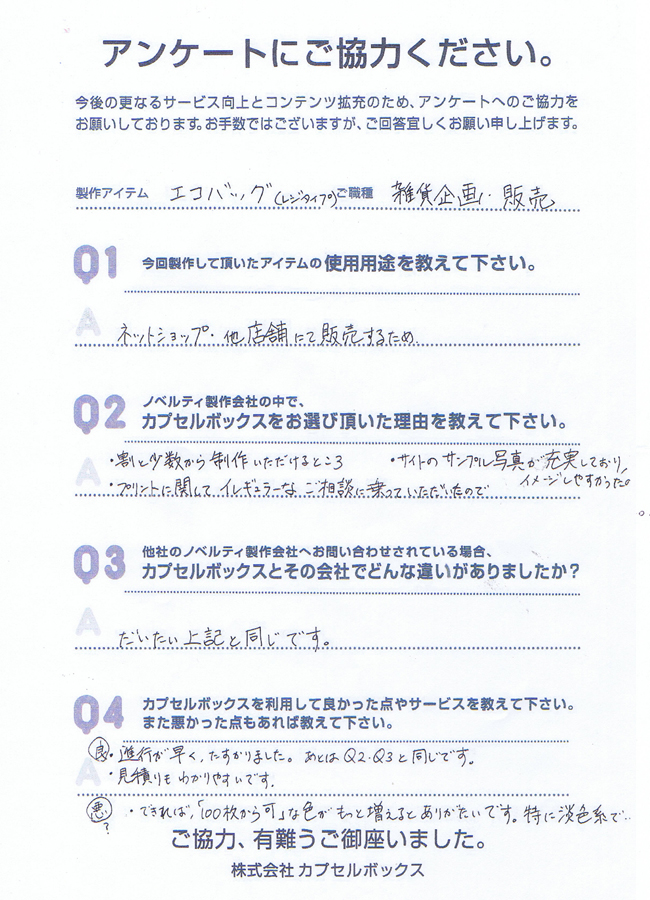 アンケートにご協力ください。
今後の更なるサービス向上とコンテンツ拡充のため、アンケートへのご協力を
お願いしております。お手数ではございますが、ご回答宜しくお願い申し上げます。
製作アイテム エコバッグ(レジタイプ) ご職種 雑貨企画・販売
Q1 今回製作して頂いたアイテムの使用用途を教えて下さい。
A ネットショップ・他店舗にて販売するため
Q2 ノベルティ製作会社の中で、
カプセルボックスをお選び頂いた理由を教えて下さい。
A ・割と少数から制作いただけるところ
・プリントに関して イレギュラーな ご相談に乗っていただいたので
・サイトのサンプル写真が充実しており、
イメージしやすかった。
Q3 他社のノベルティ製作会社へお問い合わせされている場合、
カプセルボックスとその会社でどんな違いがありましたか?
A だいたい上記と同じです。
Q4 カプセルボックスを利用して良かった点やサービスを教えて下さい。
また悪かった点もあれば教えて下さい。
A 良・進行が早く、たすかりました。あとはQ2・Q3と同じです。
・見積りもわかりやすいです。
悪? ・できれば、「100枚から可」な色がもっと増えるとありがたいです。特に淡色系で…
ご協力、有難うご御座いました。
株式会社 カプセルボックス